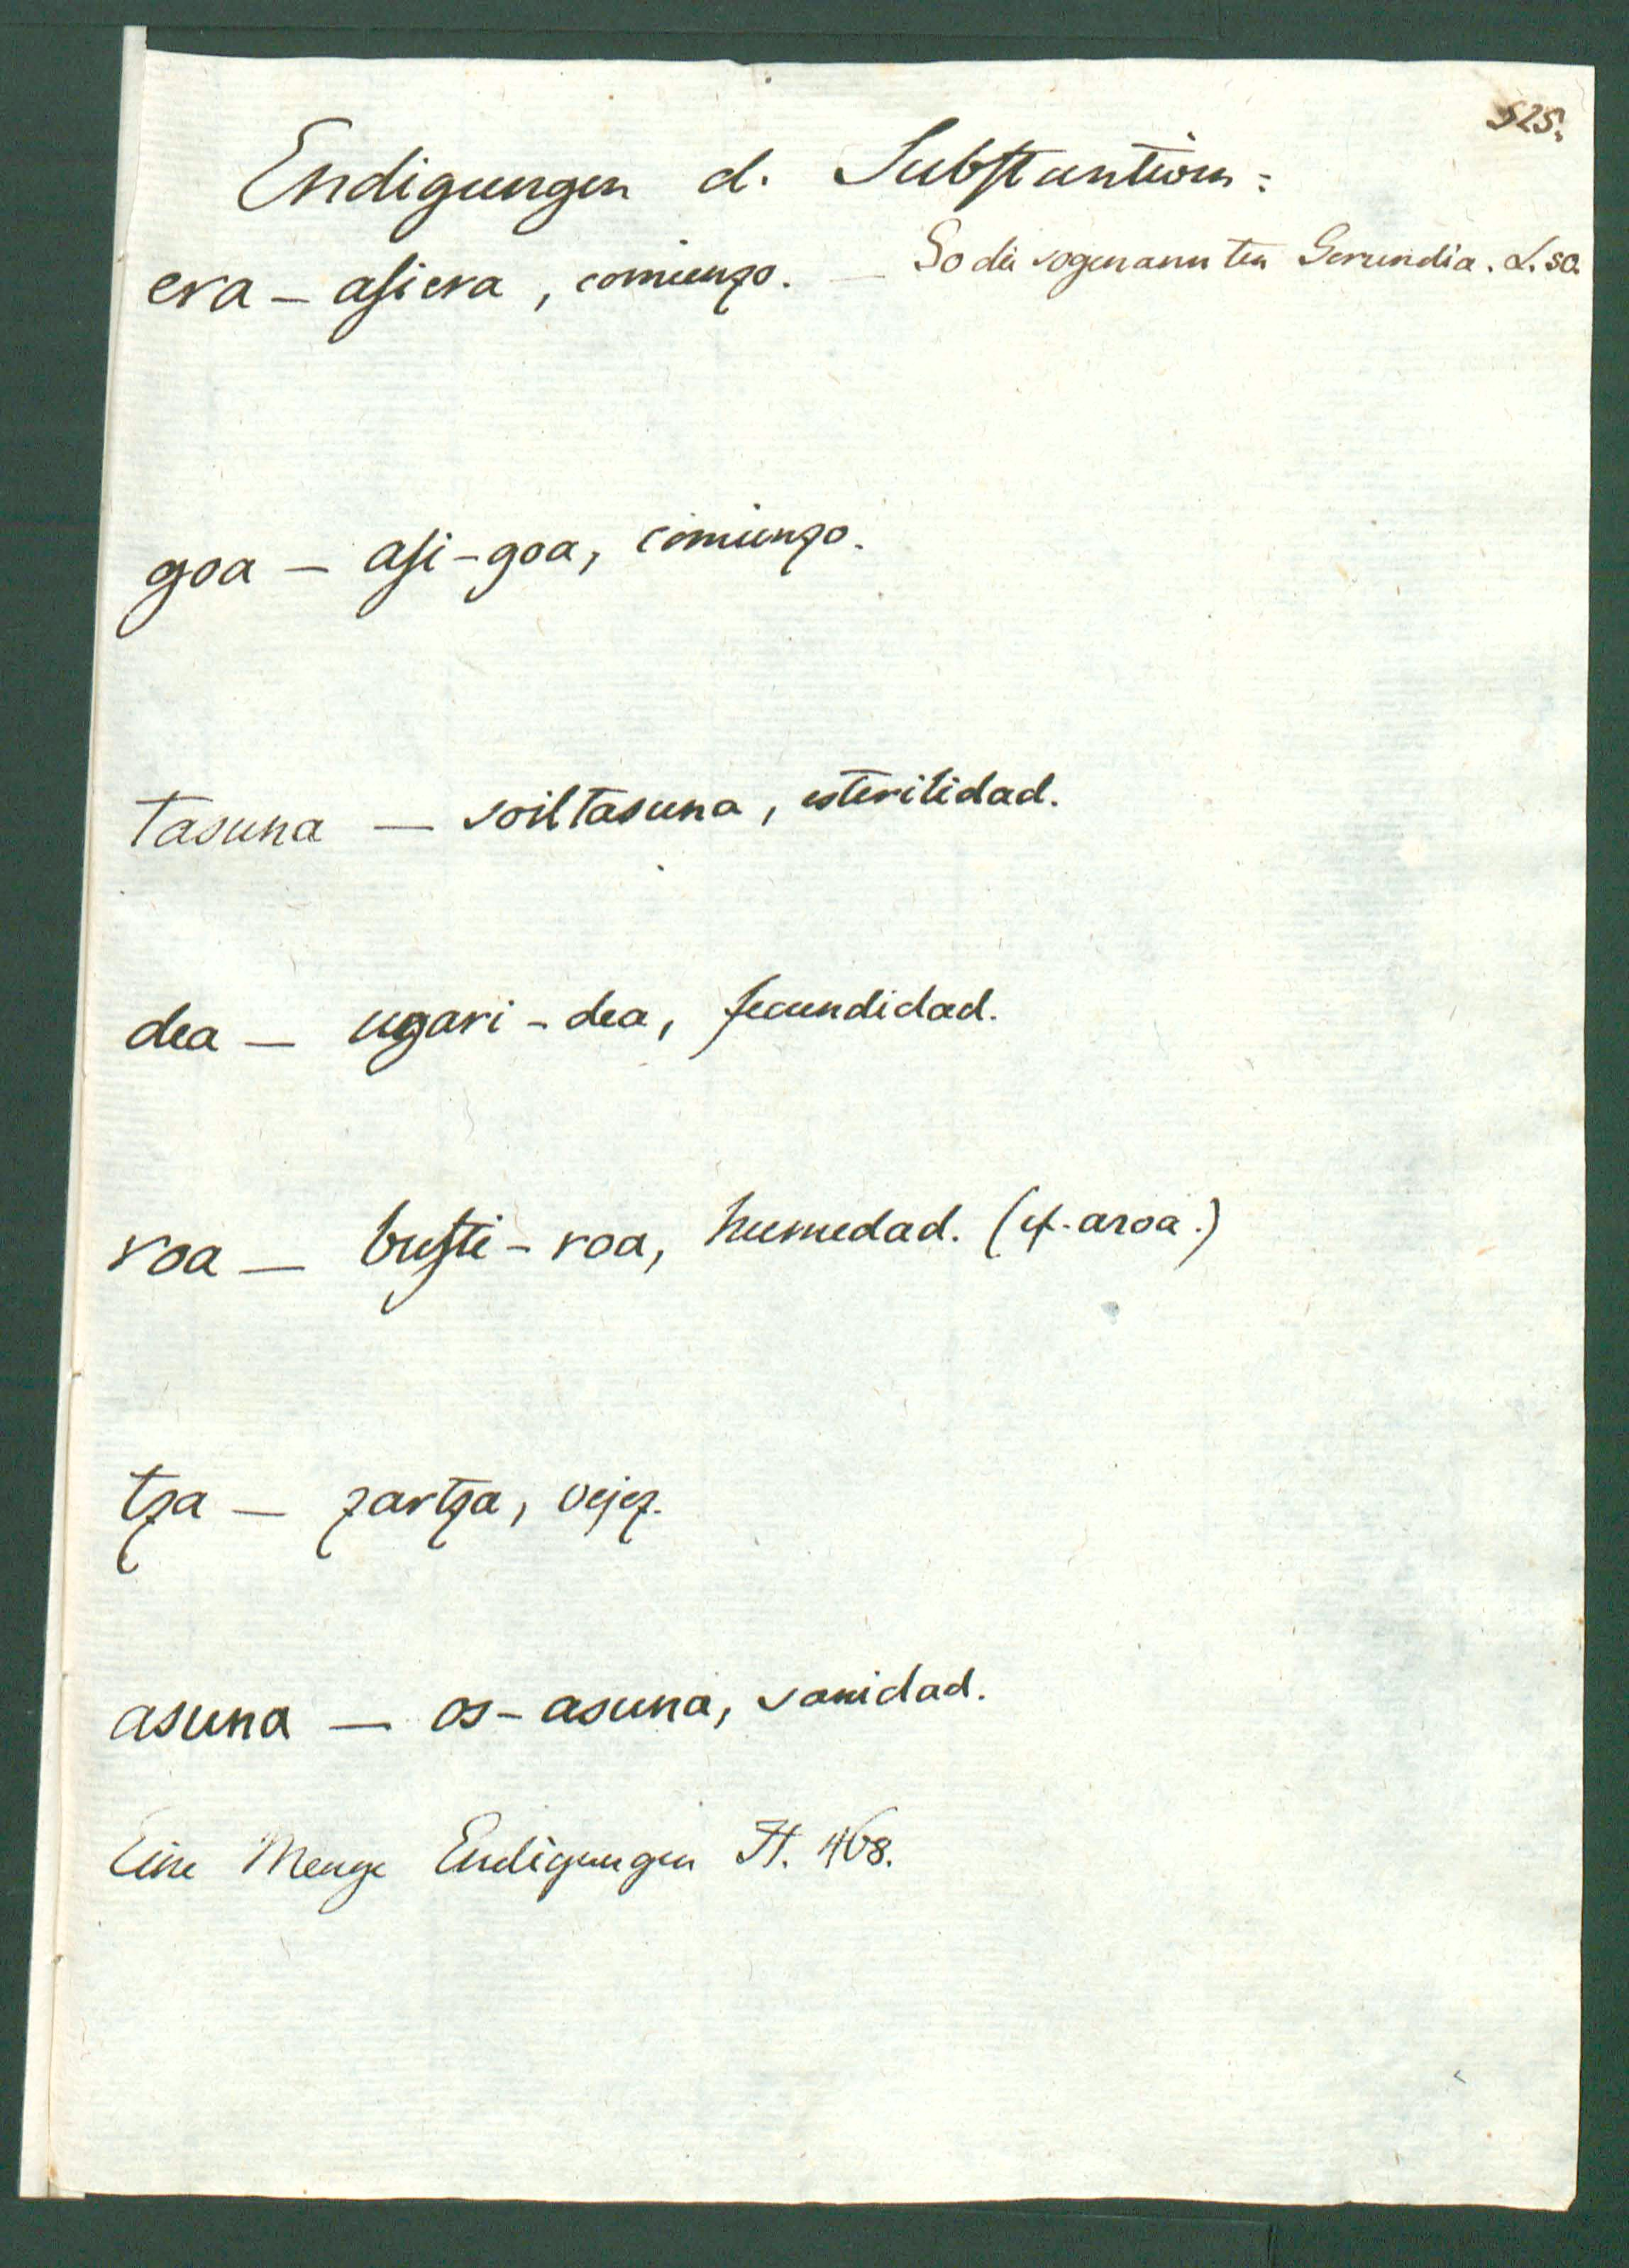 525.
Endigungen d. Substantiven:
era — asiera, comienzo. — So die sogenannten Gerundia. L. 50.
goa — asi-goa, comienzo.
tasuna — soiltasuna, esterilidad.
dea — ugari-dea, fecundidad.
roa — busti-roa, humedad. (cf. aroa.)
tza — zartza, vejez.
asuna — os-asuna, sanidad.
Eine Menge Endigungen H. 468.